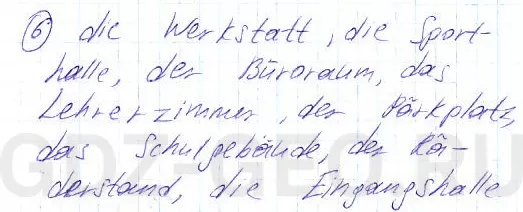 6 die Werkstatt, die Sport-
halle, der Büroraum, das
Lehrerzimmer, der Pärkplatz,
das Schulgebäude, der Rä-
derstand, die Eingangshalle